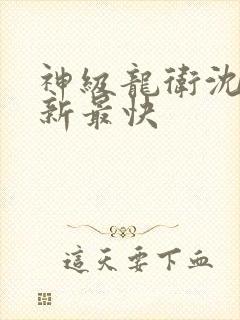 神級龍衛沈
新最快
這天要下血